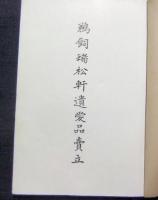 鵜飼瑞松軒遺愛品賣立